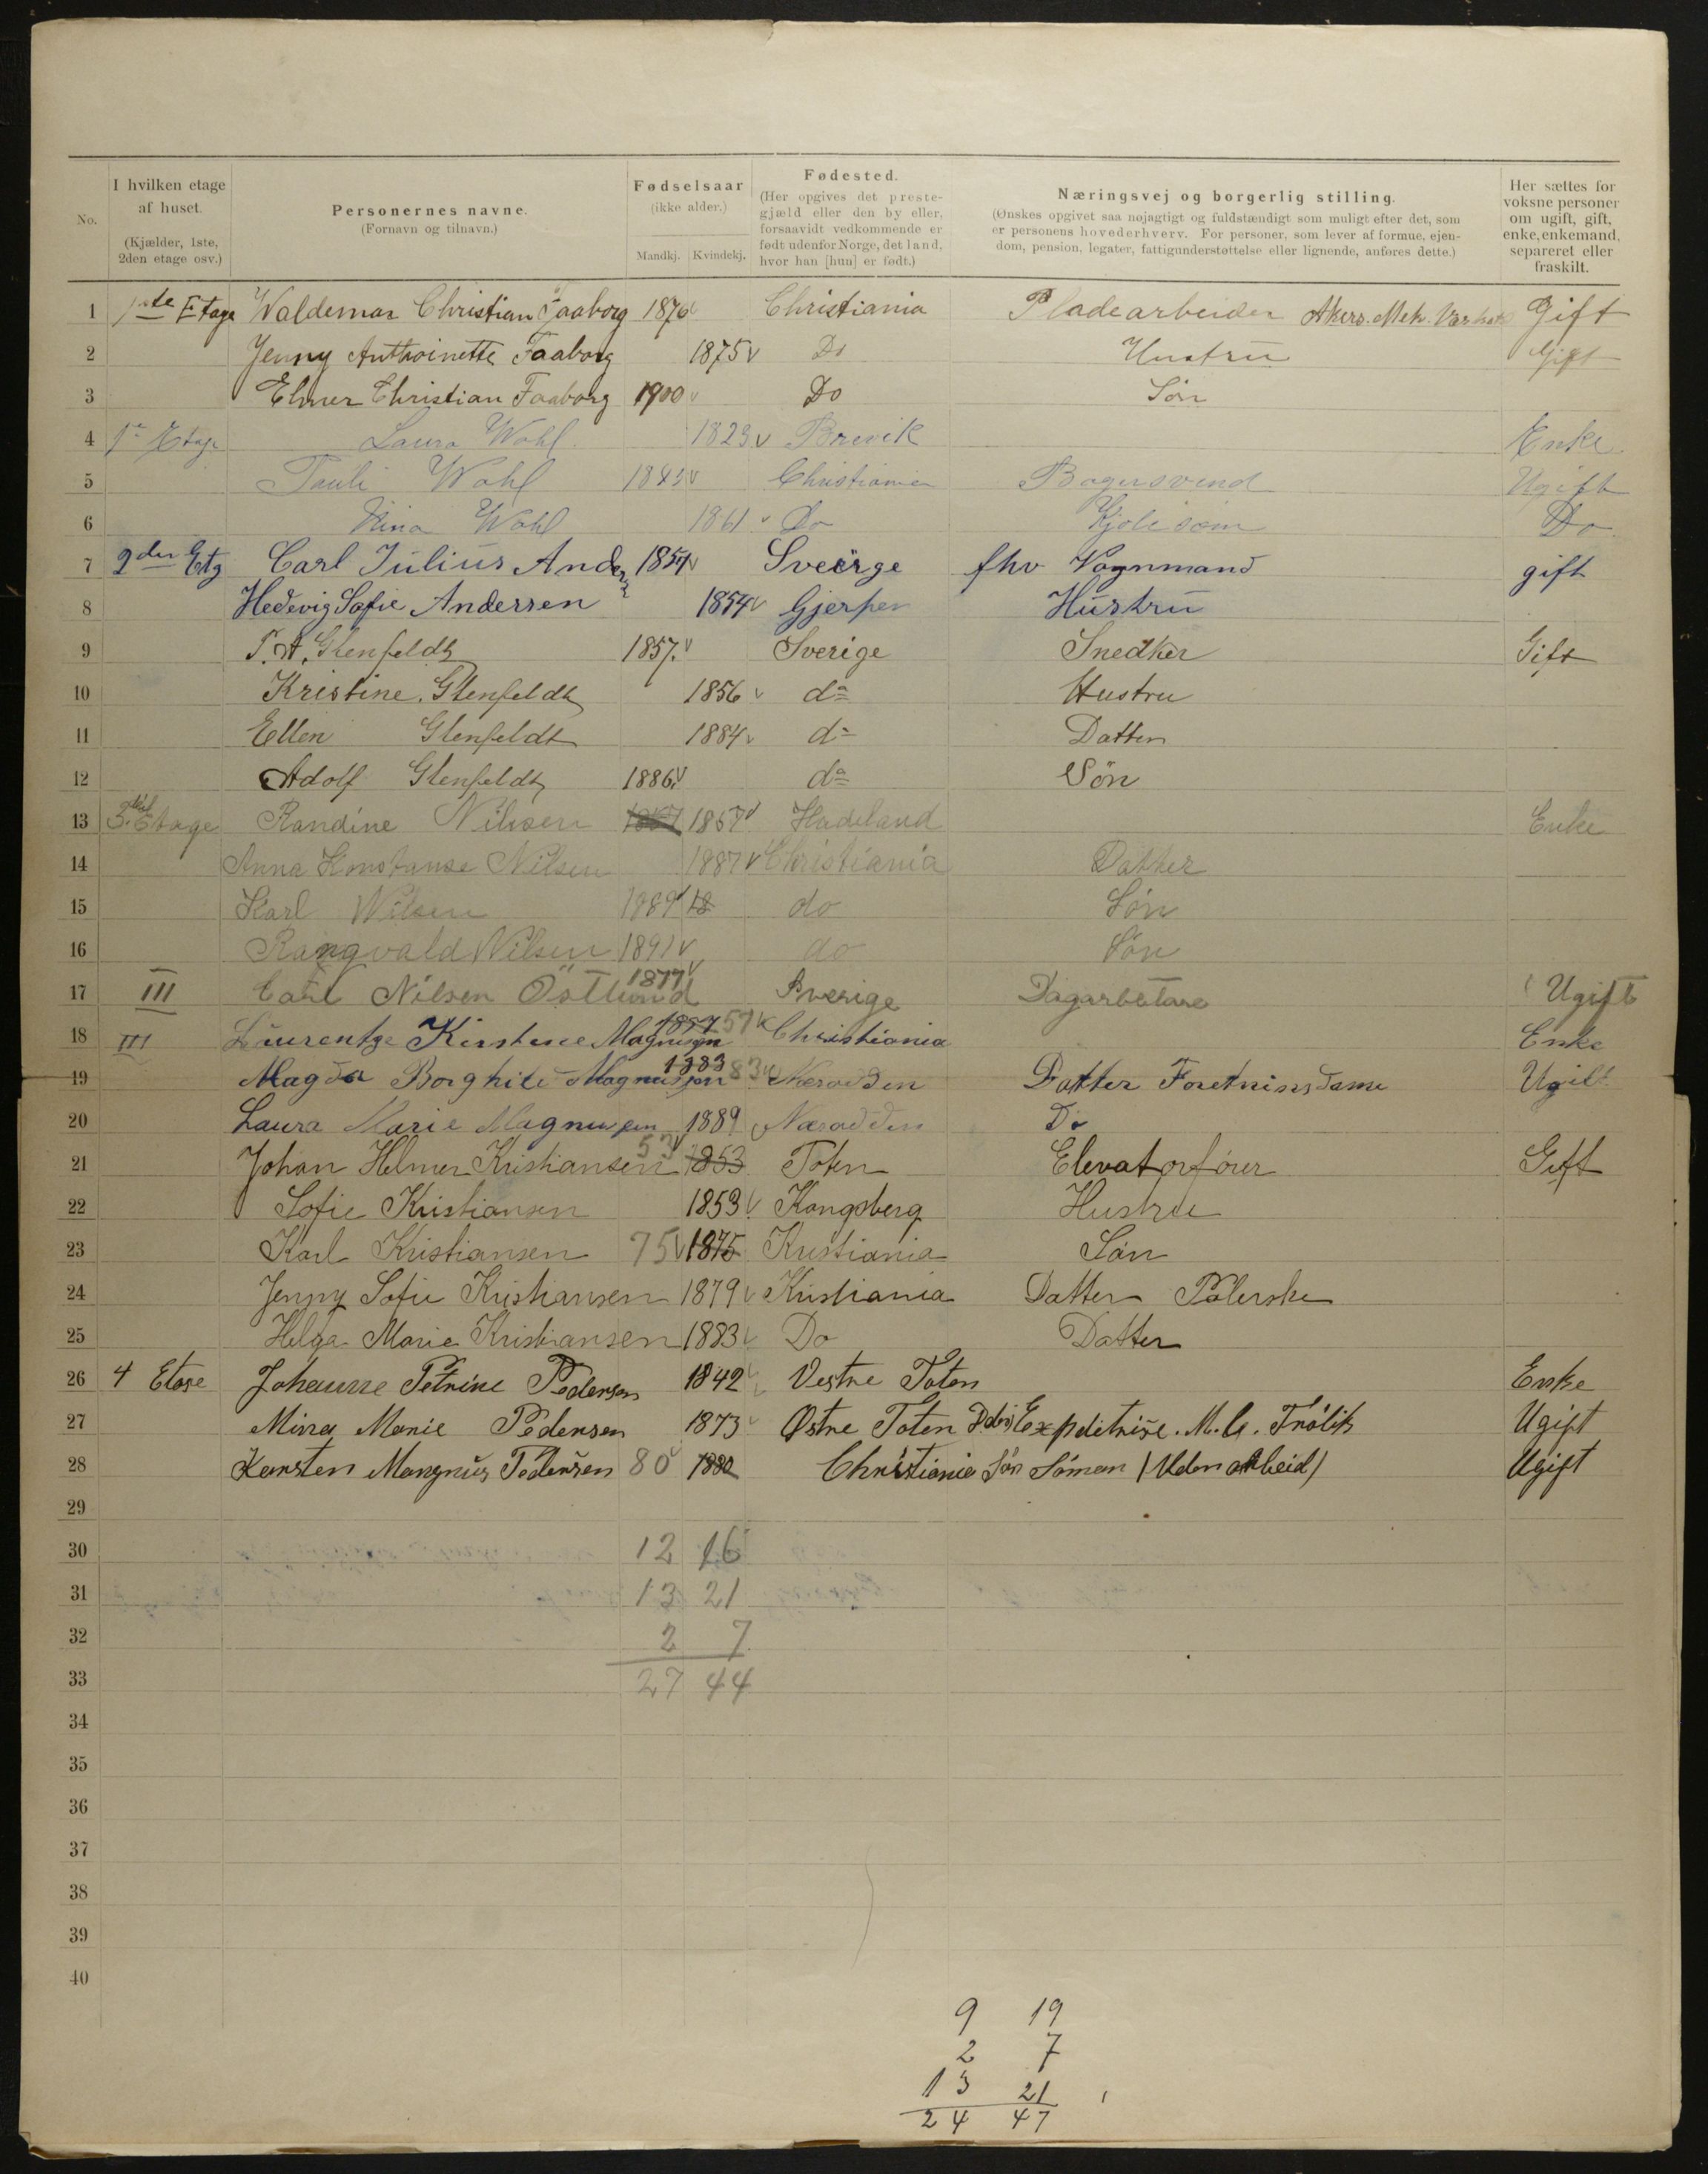 No.
I hvilken etage af huset.
(Kjælder, 1ste, 2den etage osv.)
Personernes navne.
(Fornavn og tilnavn.)
Fødselsaar
(ikke alder.)
Mandkj. Kvindekj.
Fødested.
(Her opgives det preste-
gjæld eller den by eller,
forsaavidt vedkommende er
født udenfor Norge, det land,
hvor han [hun] er født.)
Næringsvej og borgerlig stilling.
(Ønskes opgivet saa nøjagtigt og fuldstændigt som muligt efter det, som
er personens hovederhverv. For personer, som lever af formue, ejen-
dom, pension, legater, fattigunderstøttelse eller lignende, anføres dette.)
Her sættes for
voksne personer
om ugift, gift,
enke, enkemand,
separeret eller
fraskilt.
1 1ste Etage Waldemar Christian Faaborg 1876 Christiania Pladearbeider Akers. Mek. Gift
2 Jenny Anthoinette Faaborg 1875 Do Hustru Gift
3 Elmer Christian Faaborg 1900 Do Søn
4 1e Etage Laura Wahl 1823 Brevik Enke
5 Wahl Christiania Bagersvend Ugift
6 Wahl 1861 Do Do
7 2den Etg Carl Julius Ander 1854 Sverige fhv Vognmand gift
8 Hedevig Sofie Andersen 1854 Gjerpen Hustru
9 P. A. Glenfeldt 1857. Sverige Snedker Gift
10 Kristine. Glenfeldt 1856 do Hustru
11 Ellen Glenfeldt 1884 do Datter
12 Adolf Glenfeldt 1886 do Søn
13 3. Etage Randine Nilsen 1857 Hadeland Enke
14 Anna Konstanse Nilsen 1887 Christiania Datter
15 Karl Nilsen 1889 18 do Søn
16 Rangvald Nilsen 1891 do Søn
17 III Carl Nilsen Östlund 1877 Sverige Dagarbetare Ugift
18 III Laurentze Kirstine Magnusen 1857 57 K Christiania Enke
19 Magda Borghild Magnussen 1883 83 Næsodden Datter Foretninsdame Ugift
20 Laura Marie Magnusen 1889 Næsodden Do
21 Johan Helmer Kristiansen 53 1853 Toten Elevatorfører Gift
22 Sofie Kristiansen 1853 Kongsberg Hustru
23 Karl Kristiansen 75 1875 Kristiania Søn
24 Jenny Sofie Kristiansen 1879 Kristiania Datter Polerske
25 Helga Marie Kristiansen 1883 Do Datter
26 4 Etage Johanne Petrine Pedersen 1842 Vestre Toten Enke
27 Mina Marie Pedersen 1873 Østre Toten Expeditrise. M. Ugift
28 Karsten Mangnus Pedersen 80 1880 Christiania Søn Söman (Uden arbeid) Ugift
29
30 12 16
31 13 21
32 2 7
33 27 44
34
35
36
37
38
39
40
9 19
2 7
13 21
24 47